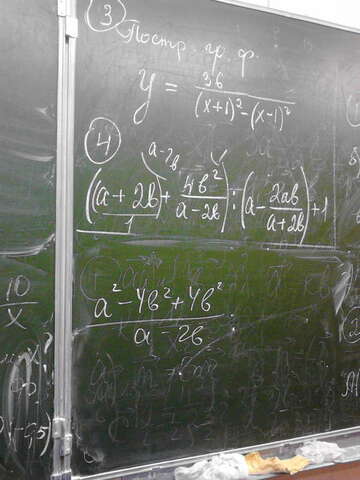 3
Постр. гр. ф.
y = 36 / ((x+1)² - (x-1)²)
4
a-2b
((a+2b)/1 + 4b²/(a-2b)) : (a - 2ab/(a+2b)) + 1
(a² - 4b² + 4b²)/(a-2b) :
10/x